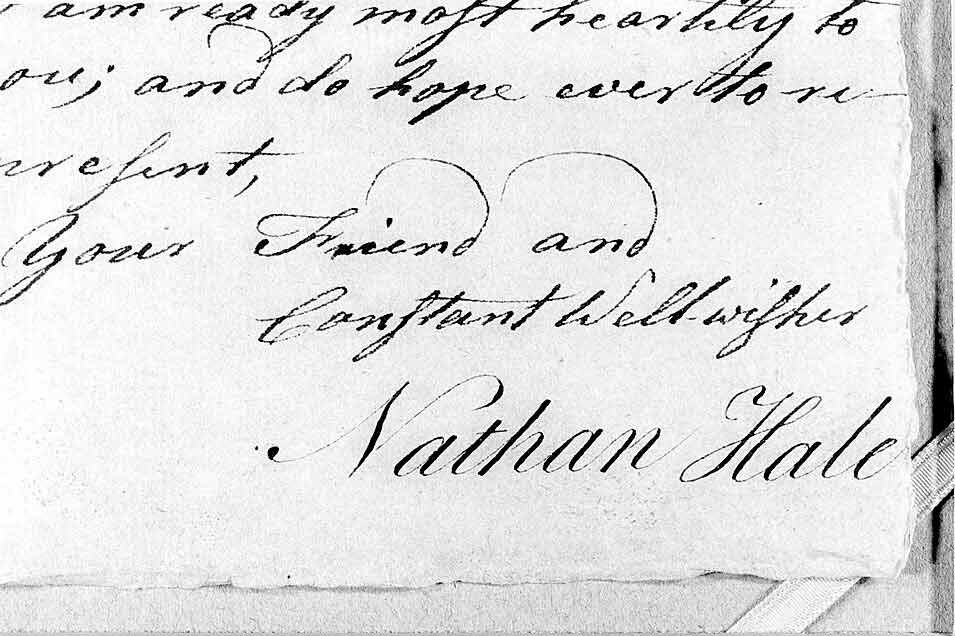 am ready most heartily to
ou; and do hope ever to re-
present,
Your Friend and
Constant Well-wisher
Nathan Hale